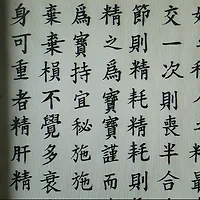 交一次則喪半合
節則精耗精耗則
精之為寶寶謹而
為寶持宜秘施施
棄棄損不覺多衰
身可重者精肝精